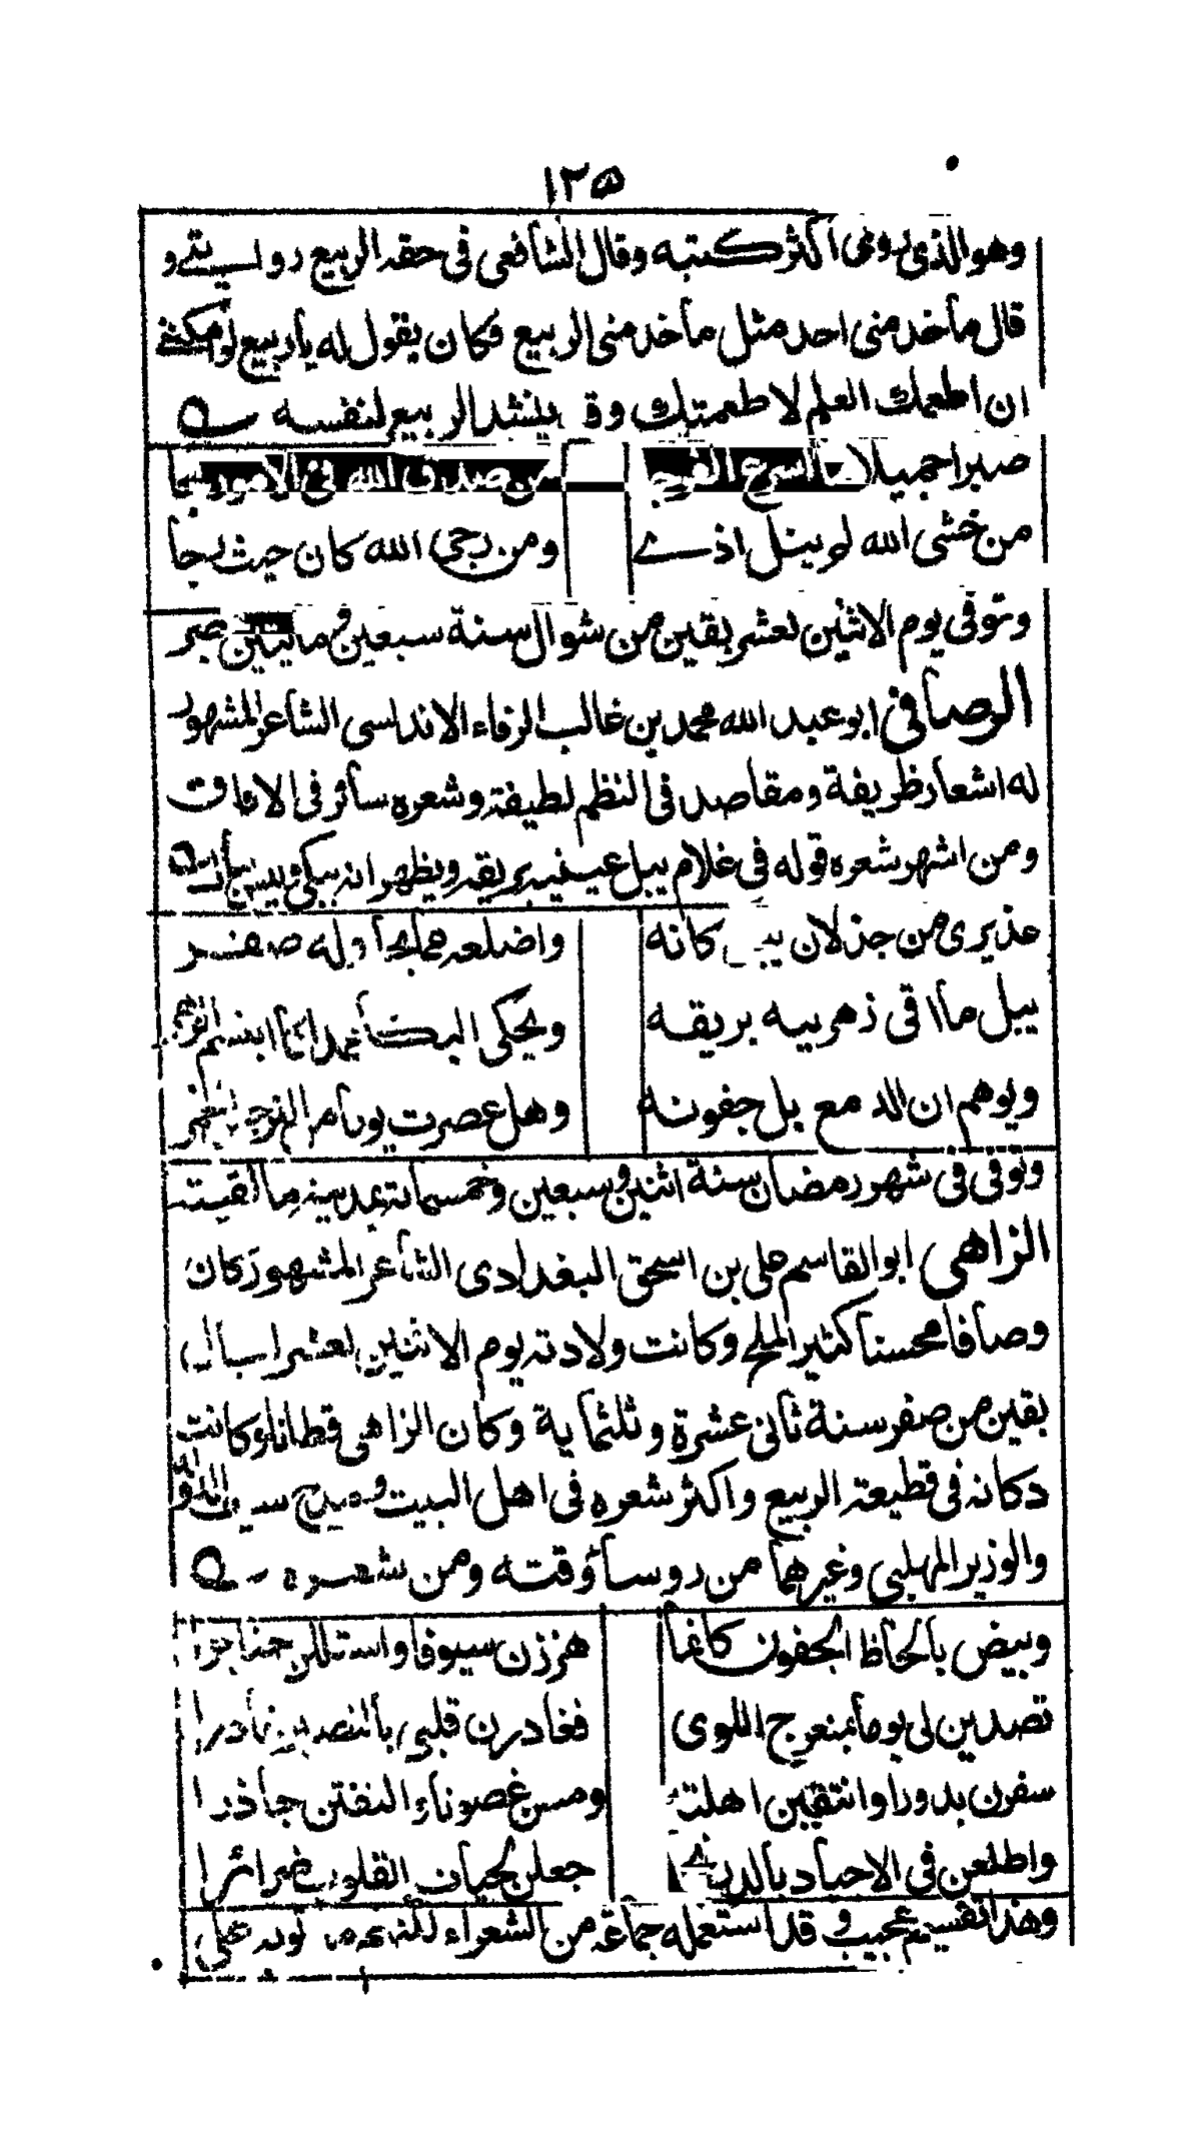 ١٢٥
وهو الذى روى اكثر كتبه وقال الشافعى فى حقه الربيع روايتى و
قال ما خدمنى احد مثل ما خدمنى الربيع فكان يقول له ياربيع لو امكننى
ان اطعمك العلم لاطعمتك وقد ينشد الربيع لنفسه
صبرا جميلا ما اسرع الفرجا من صدق الله فى الامور نجا
من خشى الله لم ينل اذى ومن رجى الله كان حيث رجا
وتوفى يوم الاثنين لعشر بقين من شوال سنة سبعين ومايتين بمصر
الرصافى ابو عبد الله محمد بن غالب الرفاء الاندلسى الشاعر المشهور
له اشعار ظريفة ومقاصد فى النظم لطيفة وشعره سائر فى الافاق
ومن اشهر شعره قوله فى غلام يبل عينيه بريقه ويظهر انه يبكى
عذيرى من جذلان كانه واضلعه مما صفر
يبل ماقى زهرتيه بريقه ويحكى البكا عمدا كما ابتسم الزهر
ويوهم ان الدمع بل جفونه وهل عصرت يوما من النرجس الخمر
وتوفى فى شهر رمضان سنة اثنين وسبعين وخمسماية بمدينة مالقة
الزاهى ابو القاسم على بن اسحق البغدادى الشاعر المشهور كان
وصافا محسنا كثير الملح وكانت ولادته يوم الاثنين لعشر ليال
بقين من صفر سنة ثانى عشرة وثلثماية وكان الزاهى قطانا وكانت
دكانه فى قطيعة الربيع واكثر شعره فى اهل البيت ومدح سيف الدولة
والوزير المهلبى وغيرهما من روساؤقته ومن شعره
وبيض بالحاظ الجفون كانما هززن سيوفا واستللن خناجرا
تصدين لى يوما بمنعرج اللوى فغادرن قلبى بالتصبر غادرا
سفرن بدورا وانتقبن اهلة ومسن غصونا والتفتن جاذرا
واطلعن فى الاجياد بالدر جعلن لحبات القلوب ضرائرا
وهذا تقسيم عجيب وقد استعمله جماعة من الشعراء على